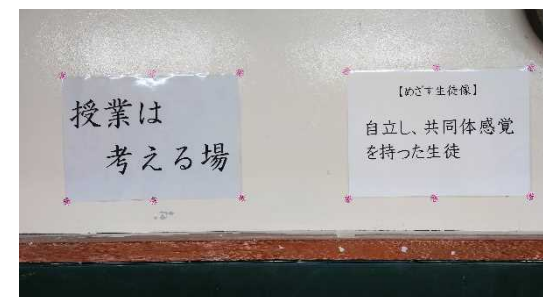 授業は
考える場
【めざす生徒像】
自立し、共同体感覚
を持った生徒